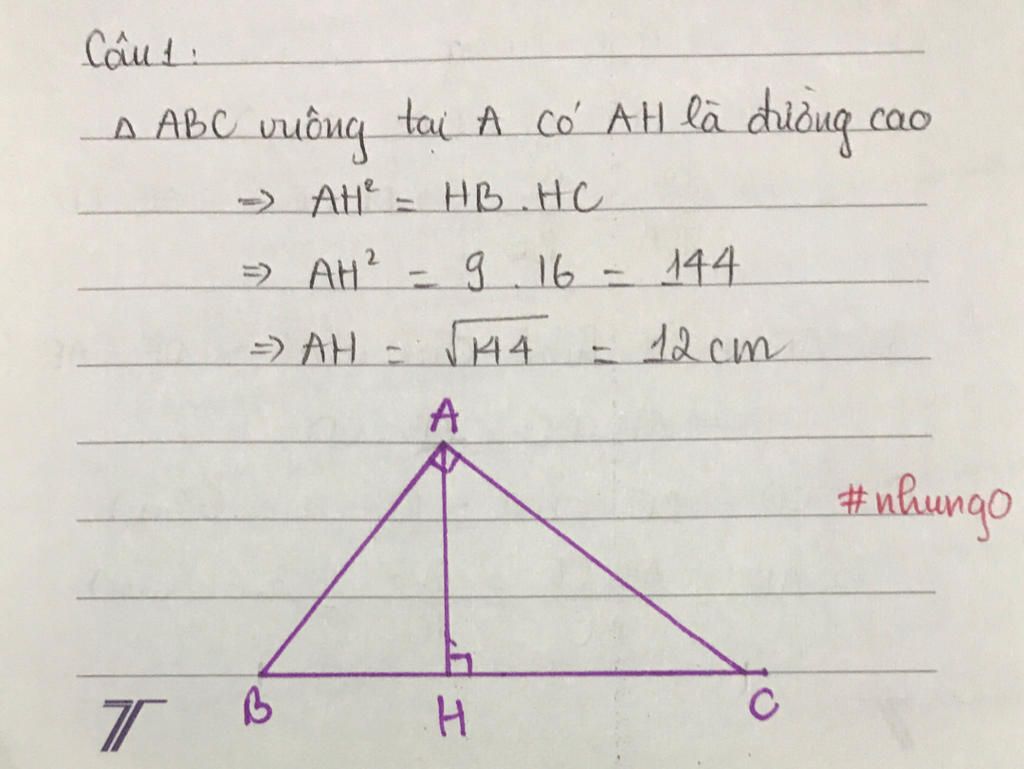 Câu 1:
Δ ABC vuông tại A có AH là đường cao
⇒ AH² = HB . HC
⇒ AH² = 9 . 16 = 144
⇒ AH = √144 = 12 cm
A
#nhung0
B H C